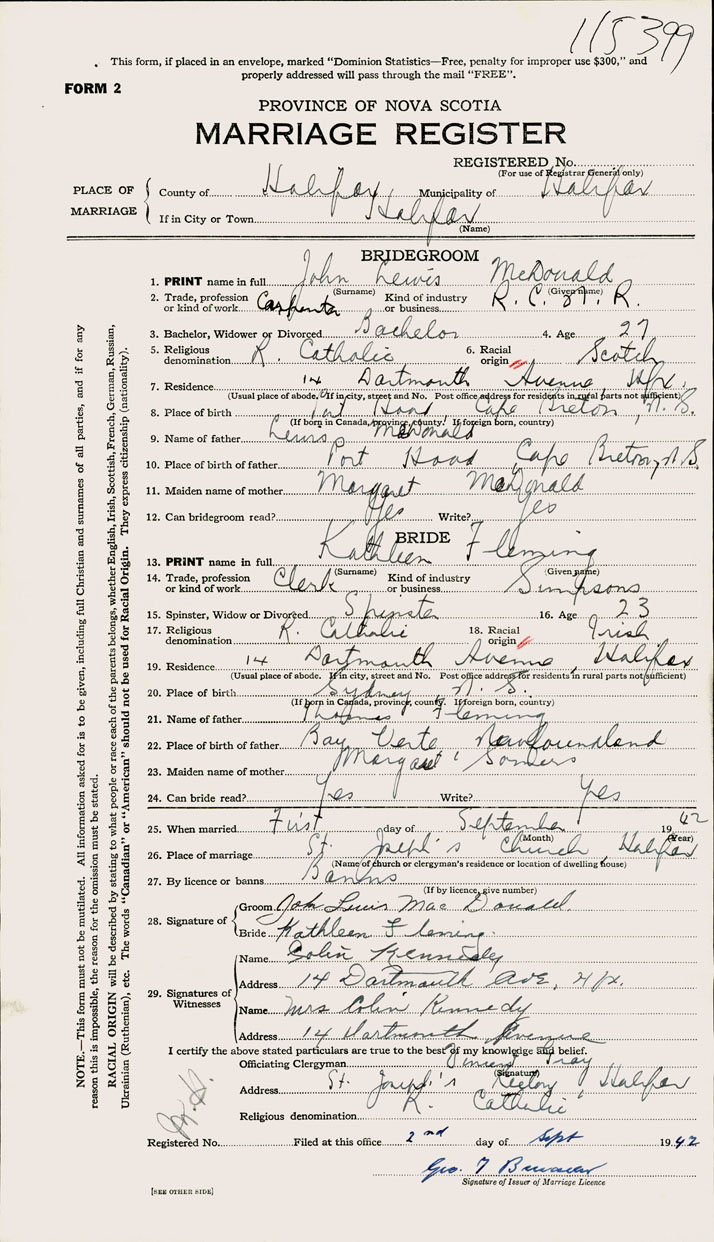 115399
This form, if placed in an envelope, marked "Dominion Statistics—Free, penalty for improper use $300," and
properly addressed will pass through the mail "FREE".
FORM 2
PROVINCE OF NOVA SCOTIA
MARRIAGE REGISTER
REGISTERED No.
(For use of Registrar General only)
PLACE OF MARRIAGE
County of Halifax Municipality of Halifax
If in City or Town Halifax
(Name)
BRIDEGROOM
1. PRINT name in full John Lewis McDonald
(Surname) (Given name)
2. Trade, profession or kind of work Carpenter Kind of industry or business R. C. N. R.
3. Bachelor, Widower or Divorced Bachelor 4. Age 27
5. Religious denomination R. Catholic 6. Racial origin Scotch
7. Residence 14 Dartmouth Avenue, Hfx.
(Usual place of abode. If in city, street and No. Post office address for residents in rural parts not sufficient)
8. Place of birth Port Hood Cape Breton, N. S.
(If born in Canada, province, county. If foreign born, country)
9. Name of father Lewis McDonald
10. Place of birth of father Port Hood, Cape Breton, N.S.
11. Maiden name of mother Margaret McDonald
12. Can bridegroom read? Yes Write? Yes
BRIDE
13. PRINT name in full Kathleen Fleming
(Surname) (Given name)
14. Trade, profession or kind of work Clerk Kind of industry or business Simpsons
15. Spinster, Widow or Divorced Spinster 16. Age 23
17. Religious denomination R. Catholic 18. Racial origin Irish
19. Residence 14 Dartmouth Avenue, Halifax
(Usual place of abode. If in city, street and No. Post office address for residents in rural parts not sufficient)
20. Place of birth Sydney N. S.
(If born in Canada, province, county. If foreign born, country)
21. Name of father Thomas Fleming
22. Place of birth of father Bay Verte Newfoundland
23. Maiden name of mother Margaret Somers
24. Can bride read? Yes Write? Yes
25. When married First day of September 1942
(Month) (Year)
26. Place of marriage St. Joseph's Church, Halifax
(Name of church or clergyman's residence or location of dwelling house)
27. By licence or banns Banns
(If by licence, give number)
28. Signature of
Groom John Lewis Mac Donald
Bride Kathleen Fleming.
29. Signatures of Witnesses
Name Colin Kennedy
Address 14 Dartmouth Ave, Hfx.
Name Mrs Colin Kennedy
Address 14 Dartmouth Avenue
I certify the above stated particulars are true to the best of my knowledge and belief.
Officiating Clergyman
(Signature)
Address St. Joseph's Rectory, Halifax
Religious denomination R. Catholic
Registered No. Filed at this office 2nd day of Sept 1942
Signature of Issuer of Marriage Licence
[SEE OTHER SIDE]
NOTE.—This form must not be mutilated. All information asked for is to be given, including full Christian and surnames of all parties, and if for any
reason this is impossible, the reason for the omission must be stated.
RACIAL ORIGIN will be described by stating to what people or race each of the parents belongs, whether English, Irish, Scottish, French, German, Russian,
Ukrainian (Ruthenian), etc. The words "Canadian" or "American" should not be used for Racial Origin. They express citizenship (nationality).